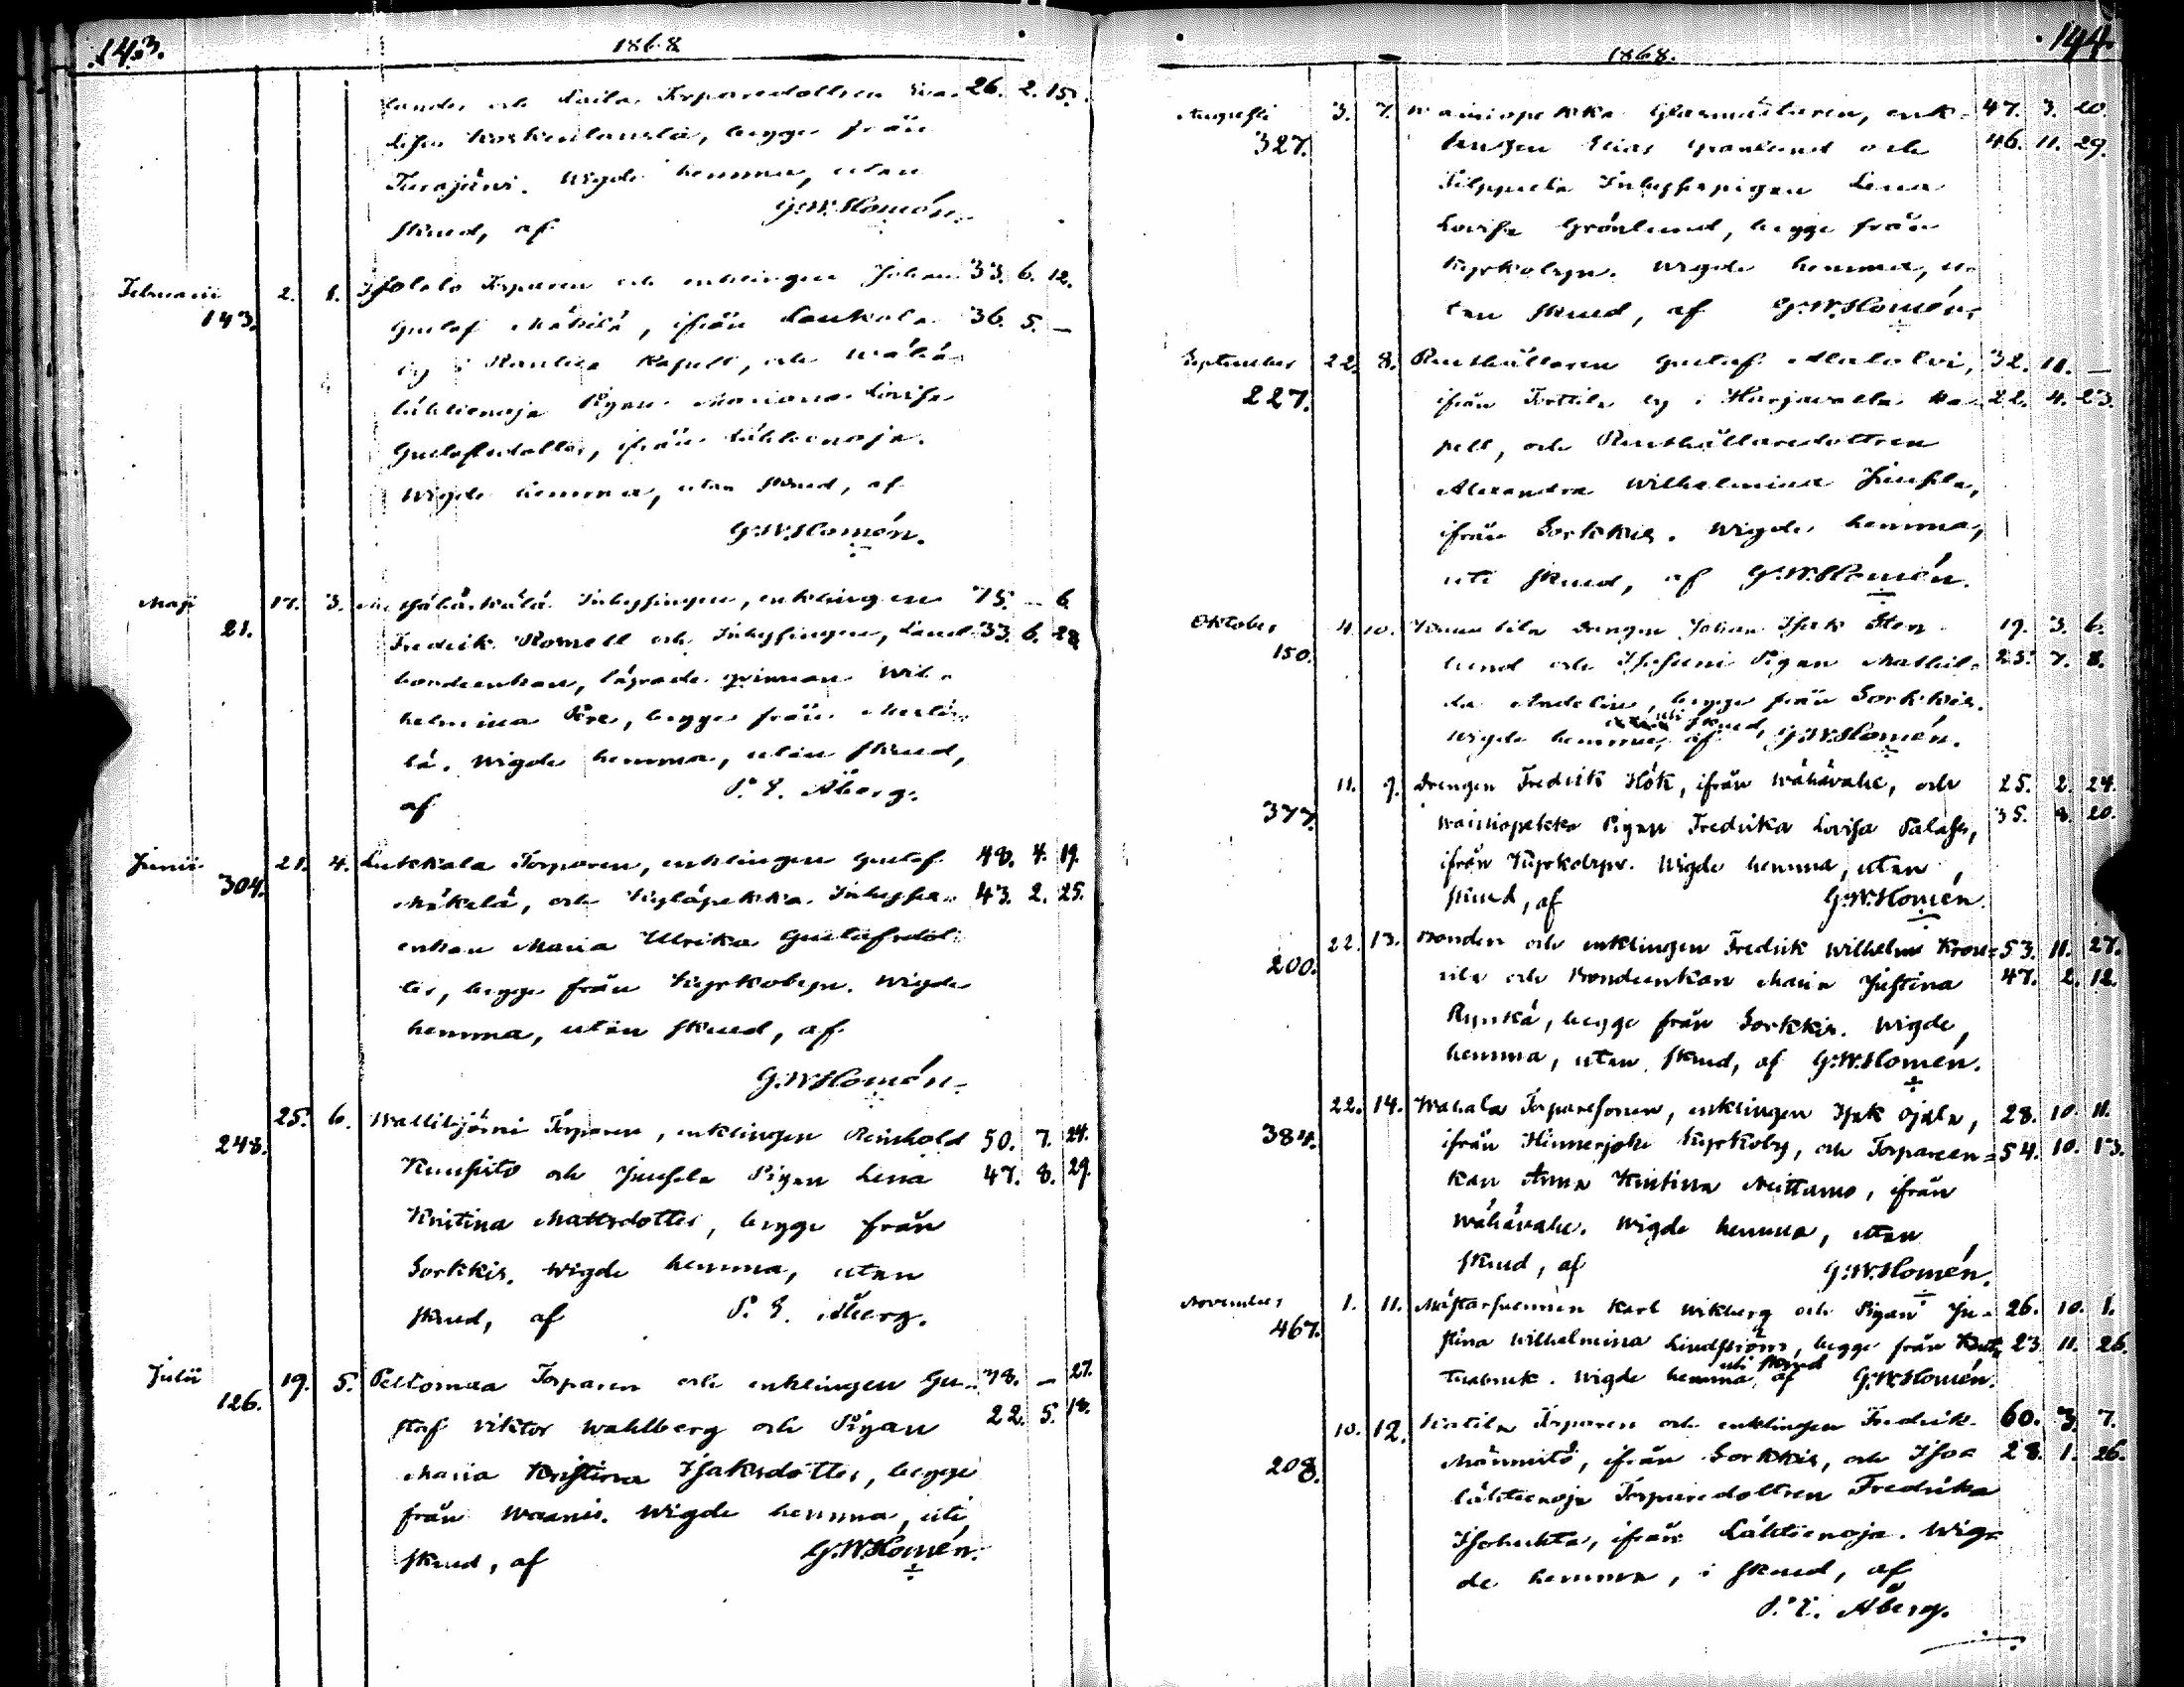 143.
1868
landes och Torparedottren Eva 26. 2. 15.
Lisa Koskenlauslä, begge från
Turajärvi. Wigde hemma, utan
skrud, af G:W:Homén.
Februarii 2. 1. Isotalo Torparen och enklingen Johan 33. 6. 12.
143. Gustaf Mäkilä, ifrån Laukola 36. 5. –
by i Kapell, och Wähä-
lähtienoja Pigan Mariana Lovisa
Gustafsdotter, ifrån Lähtienoja.
Wigde hemma, utan skrud, af
G:W:Homén.
Maji 17. 3. Inhysingen, enklingen 75. – 6.
21. Fredrik Romell och Inhysingen, Land- 33. 6. 28
bondeenkan, lägrade qvinnan Wil-
helmina begge från
lä. Wigde hemma, utan skrud,
af P. E. Åberg.
Junii 21. 4. Lukkala Torparen, enklingen Gustaf 48. 4. 19.
304. Mäkelä, och Kyläpekka Inhyses- 43. 2. 25.
enkan Maria Ulrika Gustafsdot-
ter, begge från Kyrkobyn. Wigde
hemma, utan skrud, af
G:W:Homén.
25. 6. Wallibjörni Torparen, enklingen Reinhold 50. 7. 24.
248. Kuusistö och Juusela Pigan Lena 47. 8. 29.
Kristina Mattsdotter, begge från
Sorkkis. Wigde hemma, utan
skrud, af P. E. Åberg.
Julii 19. 5. Peltomaa Torparen och enklingen Gu- 38. – 27.
126. staf Viktor Wahlberg och Pigan 22. 5. 18.
Maria Kristina Isaksdotter, begge
från Waanii. Wigde hemma, uti
skrud, af G:W:Homén.
144.
1868.
Augusti 3. 7. Wainiopekka Glasmästaren, enk- 47. 3. 20.
327. lingen Elias Grönlund och 46. 11. 29.
Filppula Inhysespigan Lena
Lovisa Grönlund, begge från
Kyrkobyn. Wigde hemma, u-
tan skrud, af G:W:Homén.
September 22. 8. Rusthållaren Gustaf Alatalvi, 32. 11. –
227. ifrån Torttila by i Harjavalla ka- 22. 4. 23.
pell, och Rusthållaredottren
Alexandra Wilhelmina Juusela,
ifrån Sorkkis. Wigde hemma,
uti skrud, af G:W:Homén.
Oktober 4. 10. Drengen Johan Isak Sten- 19. 3. 6.
150. lund och Isosuni Pigan Mathil- 25. 7. 8.
da Andelin, begge från Sorkkis.
Wigde hemma, uti skrud, af G:W:Homén.
11. 9. Drengen Fredrik Hök, ifrån Wähävahe, och 25. 2. 24.
377. Wainiopekka Pigan Fredrika Lovisa 35. 8. 20.
ifrån Kyrkobyn. Wigde hemma, utan
skrud, af G:W:Homén.
22. 13. Bonden och enklingen Fredrik Wilhelm Krou- 53. 11. 27.
200. vila och Bondeenkan Maria Justina 47. 2. 12.
Ryyskä, begge från Sorkkis. Wigde,
hemma, utan skrud, af G:W:Homén.
22. 14. Wahala Torparesonen, enklingen Isak Ojala, 28. 10. 11.
384. ifrån Hinnerjoki Kyrkoby, och Torpareen- 54. 10. 13.
kan Anna Kristina Neittamo, ifrån
Wähävahe. Wigde hemma, utan
skrud, af G:W:Homén.
November 1. 11. Mästarsvennen Karl Wikberg och Pigan Ju- 26. 10. 1.
467. stina Wilhelmina Lindström, begge från Kut- 23. 11. 26.
tuabruk. Wigde hemma, uti skrud af G:W:Homén.
10. 12. Torparen och enklingen Fredrik 60. 3. 7.
208. Männistö, ifrån Sorkkis, och Isoa 28. 1. 26.
lähtienoja Torparedottren Fredrika
Isohukta, ifrån Lähtienoja. Wig-
de hemma, i skrud, af
P. E. Åberg.